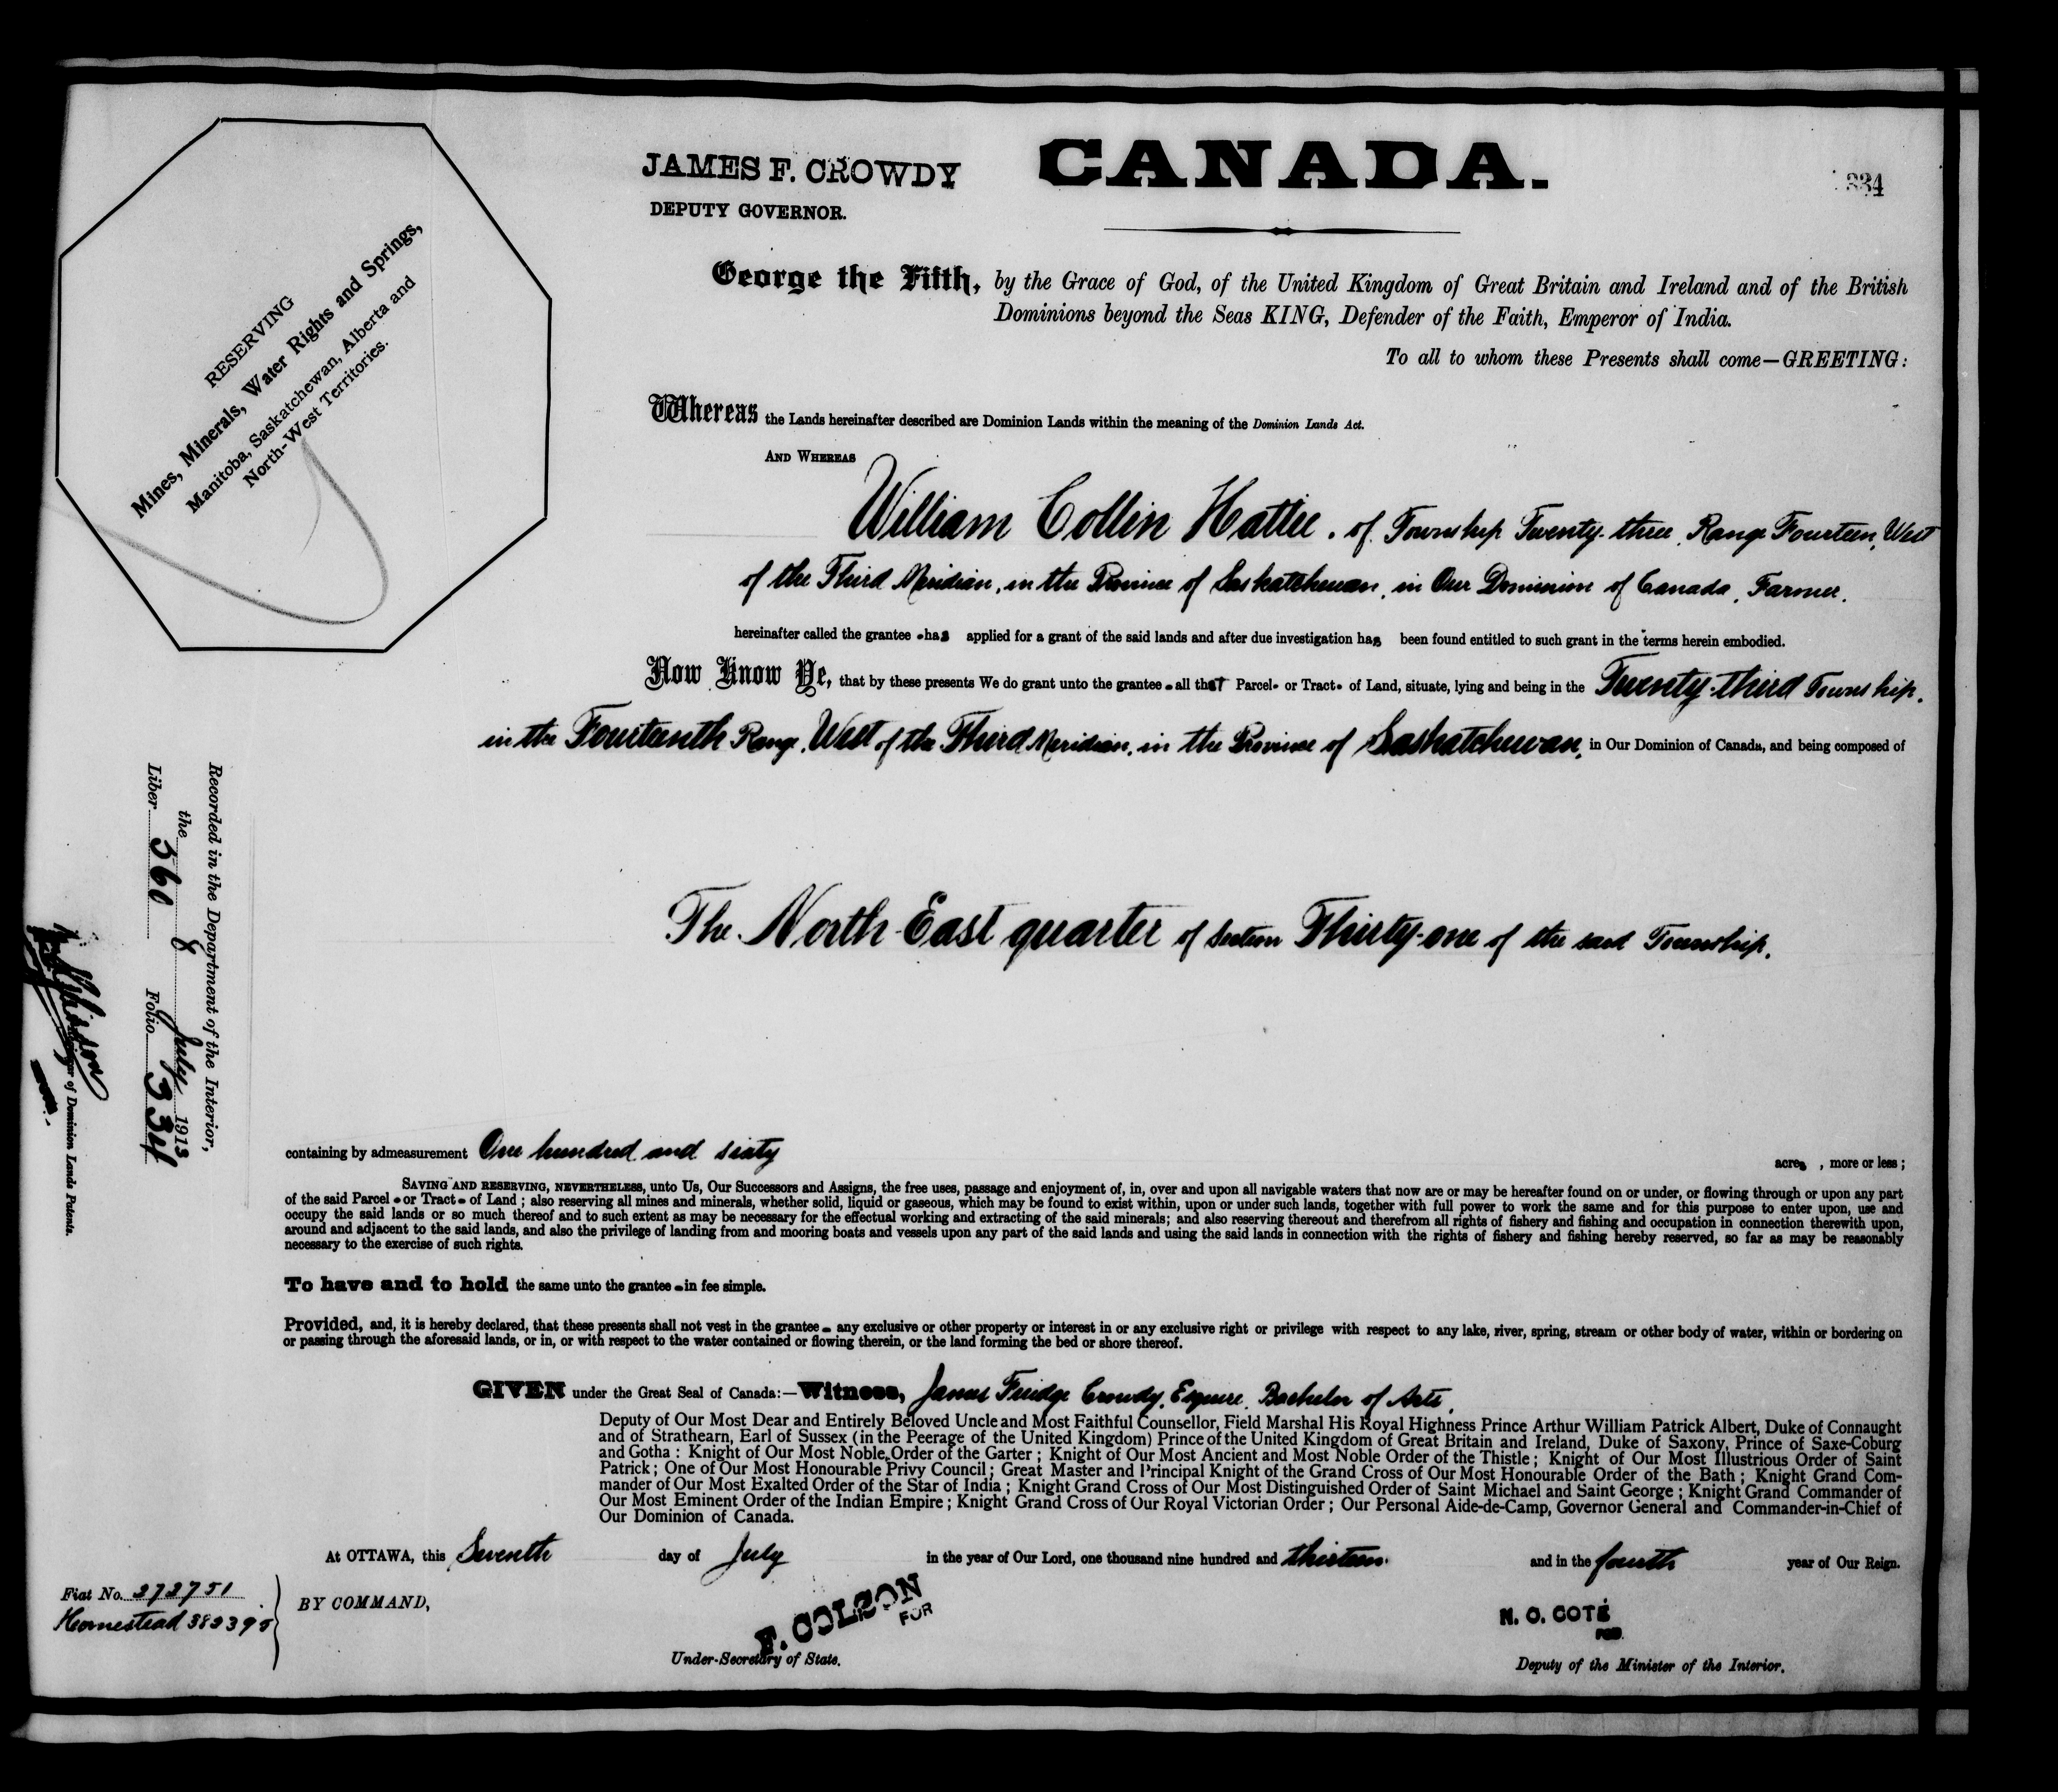 JAMES F. CROWDY
DEPUTY GOVERNOR.
CANADA.
334
RESERVING
Mines, Minerals, Water Rights and Springs,
Manitoba, Saskatchewan, Alberta and
North-West Territories.
George the Fifth, by the Grace of God, of the United Kingdom of Great Britain and Ireland and of the British
Dominions beyond the Seas KING, Defender of the Faith, Emperor of India.
To all to whom these Presents shall come—GREETING:
Whereas the Lands hereinafter described are Dominion Lands within the meaning of the Dominion Lands Act.
AND WHEREAS
William Collin Hattie, of Township Twenty-three, Range Fourteen, West
of the Third Meridian, in the Province of Saskatchewan, in Our Dominion of Canada, Farmer.
hereinafter called the grantee has applied for a grant of the said lands and after due investigation has been found entitled to such grant in the terms herein embodied.
Now Know Ye, that by these presents We do grant unto the grantee all that Parcel or Tract of Land, situate, lying and being in the Twenty-third Township,
in the Fourteenth Range, West of the Third Meridian, in the Province of Saskatchewan, in Our Dominion of Canada, and being composed of
The North East quarter of Section Thirty-one of the said Township.
Recorded in the Department of the Interior,
the 8 July 1913
Liber 560 Folio 334
of Dominion Lands Patents.
containing by admeasurement One hundred and sixty acres, more or less;
SAVING AND RESERVING, NEVERTHELESS, unto Us, Our Successors and Assigns, the free uses, passage and enjoyment of, in, over and upon all navigable waters that now are or may be hereafter found on or under, or flowing through or upon any part
of the said Parcel or Tract of Land; also reserving all mines and minerals, whether solid, liquid or gaseous, which may be found to exist within, upon or under such lands, together with full power to work the same and for this purpose to enter upon, use and
occupy the said lands or so much thereof and to such extent as may be necessary for the effectual working and extracting of the said minerals; and also reserving thereout and therefrom all rights of fishery and fishing and occupation in connection therewith upon,
around and adjacent to the said lands, and also the privilege of landing from and mooring boats and vessels upon any part of the said lands and using the said lands in connection with the rights of fishery and fishing hereby reserved, so far as may be reasonably
necessary to the exercise of such rights.
To have and to hold the same unto the grantee in fee simple.
Provided, and, it is hereby declared, that these presents shall not vest in the grantee any exclusive or other property or interest in or any exclusive right or privilege with respect to any lake, river, spring, stream or other body of water, within or bordering on
or passing through the aforesaid lands, or in, or with respect to the water contained or flowing therein, or the land forming the bed or shore thereof.
GIVEN under the Great Seal of Canada:—Witness, James Fluidge Crowdy, Esquire, Bachelor of Arts,
Deputy of Our Most Dear and Entirely Beloved Uncle and Most Faithful Counsellor, Field Marshal His Royal Highness Prince Arthur William Patrick Albert, Duke of Connaught
and of Strathearn, Earl of Sussex (in the Peerage of the United Kingdom) Prince of the United Kingdom of Great Britain and Ireland, Duke of Saxony, Prince of Saxe-Coburg
and Gotha: Knight of Our Most Noble Order of the Garter; Knight of Our Most Ancient and Most Noble Order of the Thistle; Knight of Our Most Illustrious Order of Saint
Patrick; One of Our Most Honourable Privy Council; Great Master and Principal Knight of the Grand Cross of Our Most Honourable Order of the Bath; Knight Grand Com-
mander of Our Most Exalted Order of the Star of India; Knight Grand Cross of Our Most Distinguished Order of Saint Michael and Saint George; Knight Grand Commander of
Our Most Eminent Order of the Indian Empire; Knight Grand Cross of Our Royal Victorian Order; Our Personal Aide-de-Camp, Governor General and Commander-in-Chief of
Our Dominion of Canada.
At OTTAWA, this Seventh day of July in the year of Our Lord, one thousand nine hundred and thirteen and in the fourth year of Our Reign.
Fiat No. 272751
Homestead 382395
BY COMMAND,
F. COLSON
FOR
Under-Secretary of State.
N. O. COTÉ
FOR
Deputy of the Minister of the Interior.